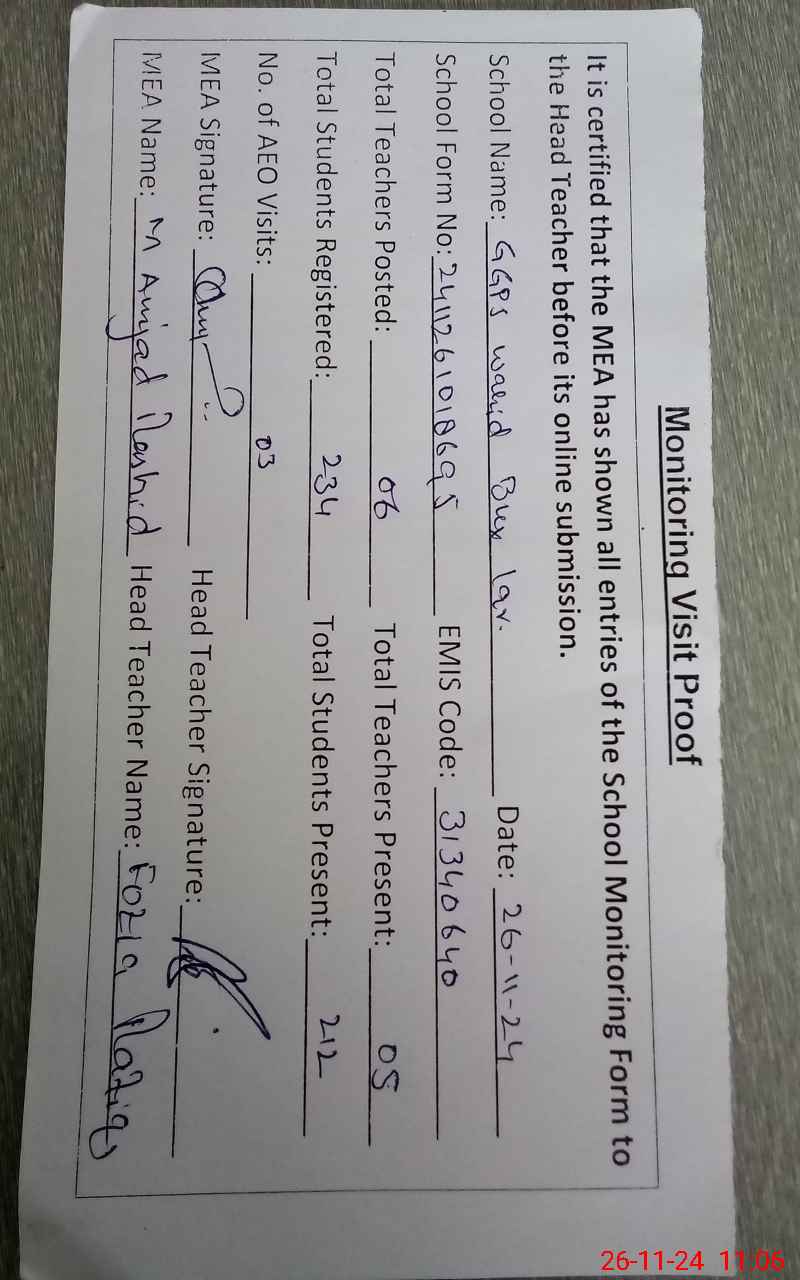 Monitoring Visit Proof
It is certified that the MEA has shown all entries of the School Monitoring Form to
the Head Teacher before its online submission.
School Name: GGPS Wahid Bux lar. Date: 26-11-24
School Form No: 241126101869 5 EMIS Code: 31340640
Total Teachers Posted: 06 Total Teachers Present: 05
Total Students Registered: 234 Total Students Present: 212
No. of AEO Visits: 03
MEA Signature: Head Teacher Signature:
MEA Name: M Amjad Rashid Head Teacher Name: Fozia Raziq
26-11-24 11:06